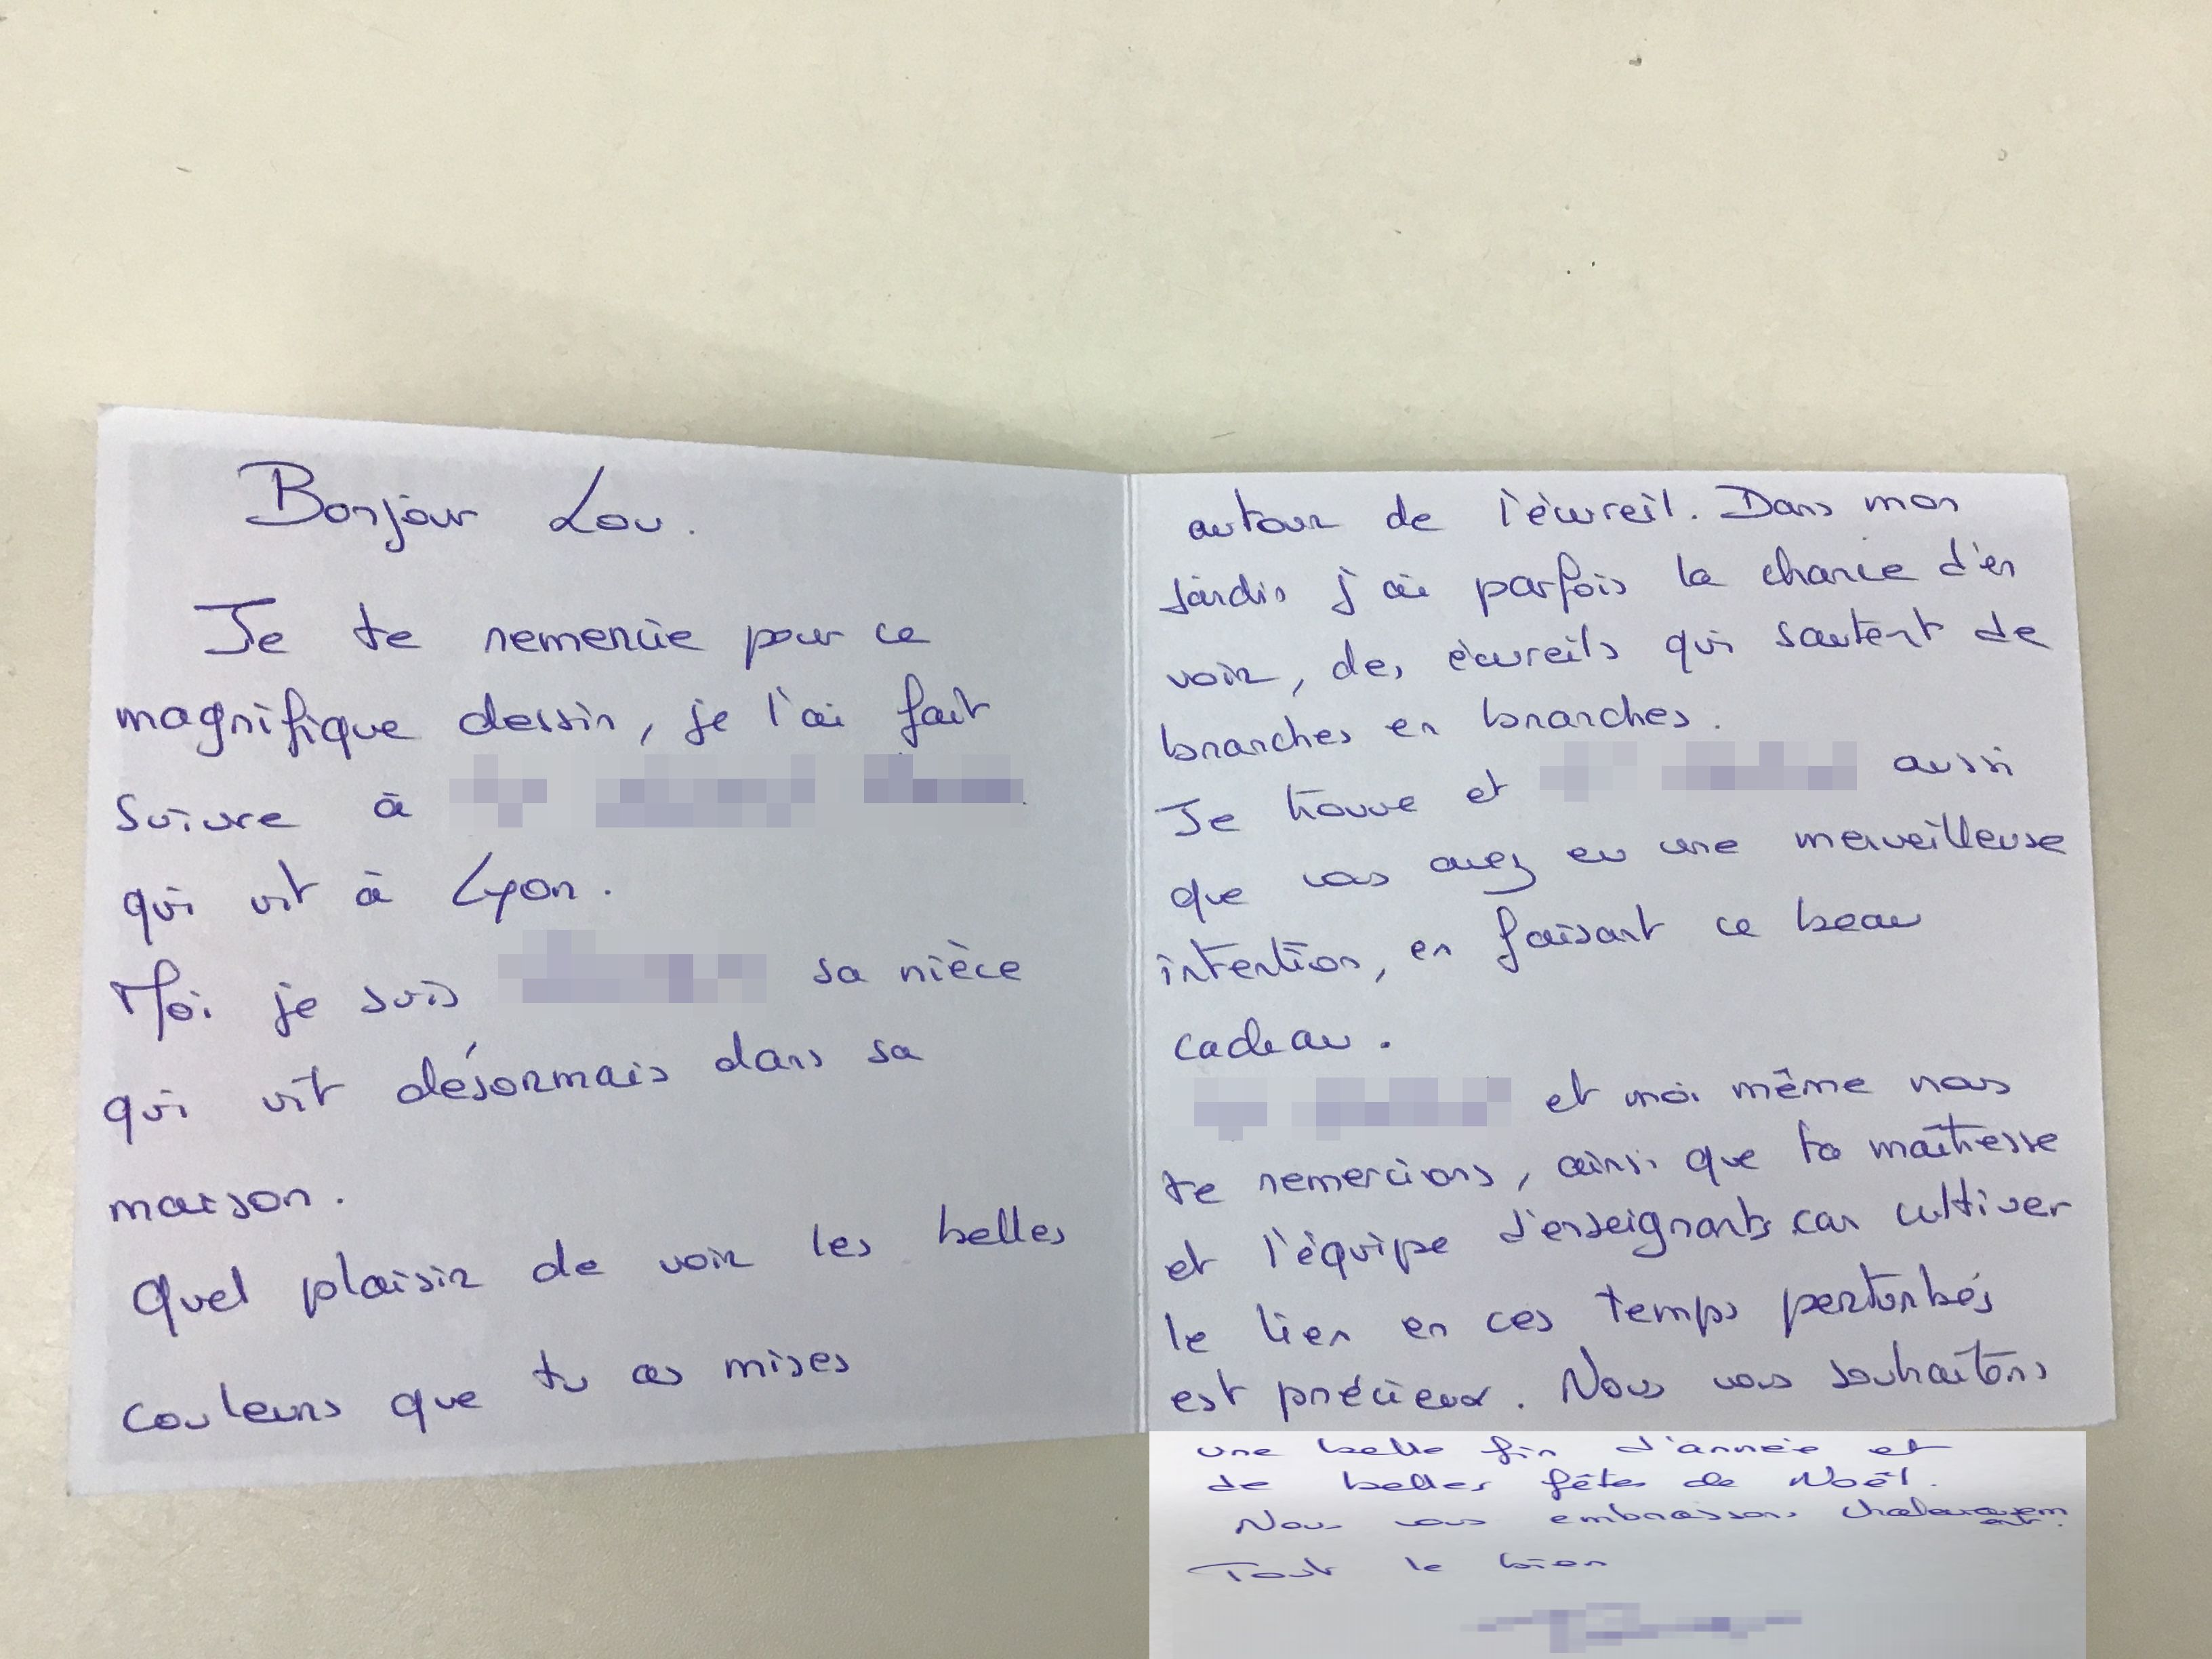 Bonjour Lou.
Je te remercie pour ce
magnifique dessin, je l'ai fait
suivre à
qui vit à Lyon.
Moi je suis sa nièce
qui vit désormais dans sa
maison.
Quel plaisir de voir les belles
couleurs que tu as mises
autour de l'écureil. Dans mon
jardin j'ai parfois la chance d'en
voir, des écureils qui sautent de
branches en branches.
Je trouve et aussi
que vous avez eu une merveilleuse
intention, en faisant ce beau
cadeau.
et moi même nous
te remercions, ainsi que ta maîtresse
et l'équipe d'enseignants car cultiver
le lien en ces temps perturbés
est précieux. Nous vous souhaitons
une belle fin d'année et
de belles fêtes de Noël.
Nous vous embrassons
Tout le bien